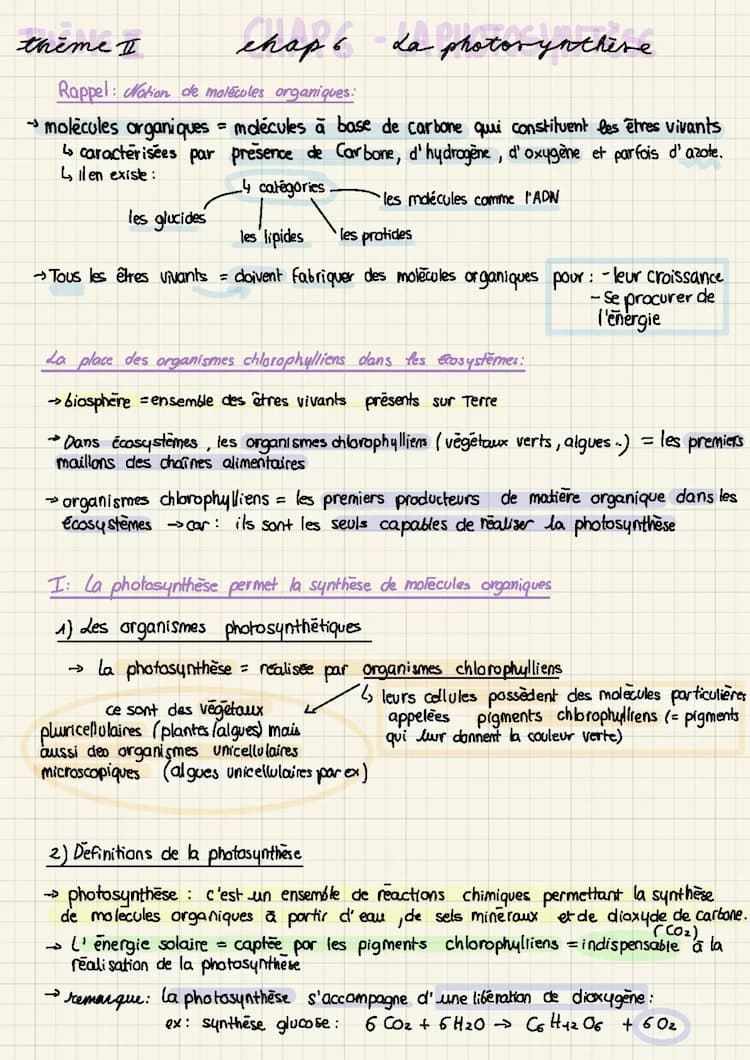 thème II chap 6 - La photosynthèse
CHAP 6 - LA PHOTOSYNTHÈSE
Rappel : Notion de molécules organiques :
→ molécules organiques = molécules à base de carbone qui constituent les êtres vivants
↳ caractérisées par présence de Carbone, d'hydrogène, d'oxygène et parfois d'azote.
↳ il en existe :
4 catégories
les molécules comme l'ADN
les glucides
les lipides
les protides
→ Tous les êtres vivants = doivent fabriquer des molécules organiques pour : - leur croissance
- Se procurer de
l'énergie
La place des organismes chlorophylliens dans les écosystèmes :
→ biosphère = ensemble des êtres vivants présents sur Terre
→ Dans écosystèmes, les organismes chlorophylliens (végétaux verts, algues ..) = les premiers
maillons des chaînes alimentaires
→ organismes chlorophylliens = les premiers producteurs de matière organique dans les
écosystèmes → car : ils sont les seuls capables de réaliser la photosynthèse
I : La photosynthèse permet la synthèse de molécules organiques
1) Les organismes photosynthétiques
→ La photosynthèse = réalisée par organismes chlorophylliens
↳ leurs cellules possèdent des molécules particulières
appelées pigments chlorophylliens (= pigments
qui leur donnent la couleur verte)
ce sont des végétaux
pluricellulaires (plantes/algues) mais
aussi des organismes unicellulaires
microscopiques (algues unicellulaires par ex)
2) Définitions de la photosynthèse
→ photosynthèse : c'est un ensemble de réactions chimiques permettant la synthèse
de molécules organiques à partir d'eau, de sels minéraux et de dioxyde de carbone.
(CO2)
→ L'énergie solaire = captée par les pigments chlorophylliens = indispensable à la
réalisation de la photosynthèse
→ remarque : la photosynthèse s'accompagne d'une libération de dioxygène :
ex : synthèse glucose : 6 CO2 + 6 H2O → C6 H12 O6 + 6 O2